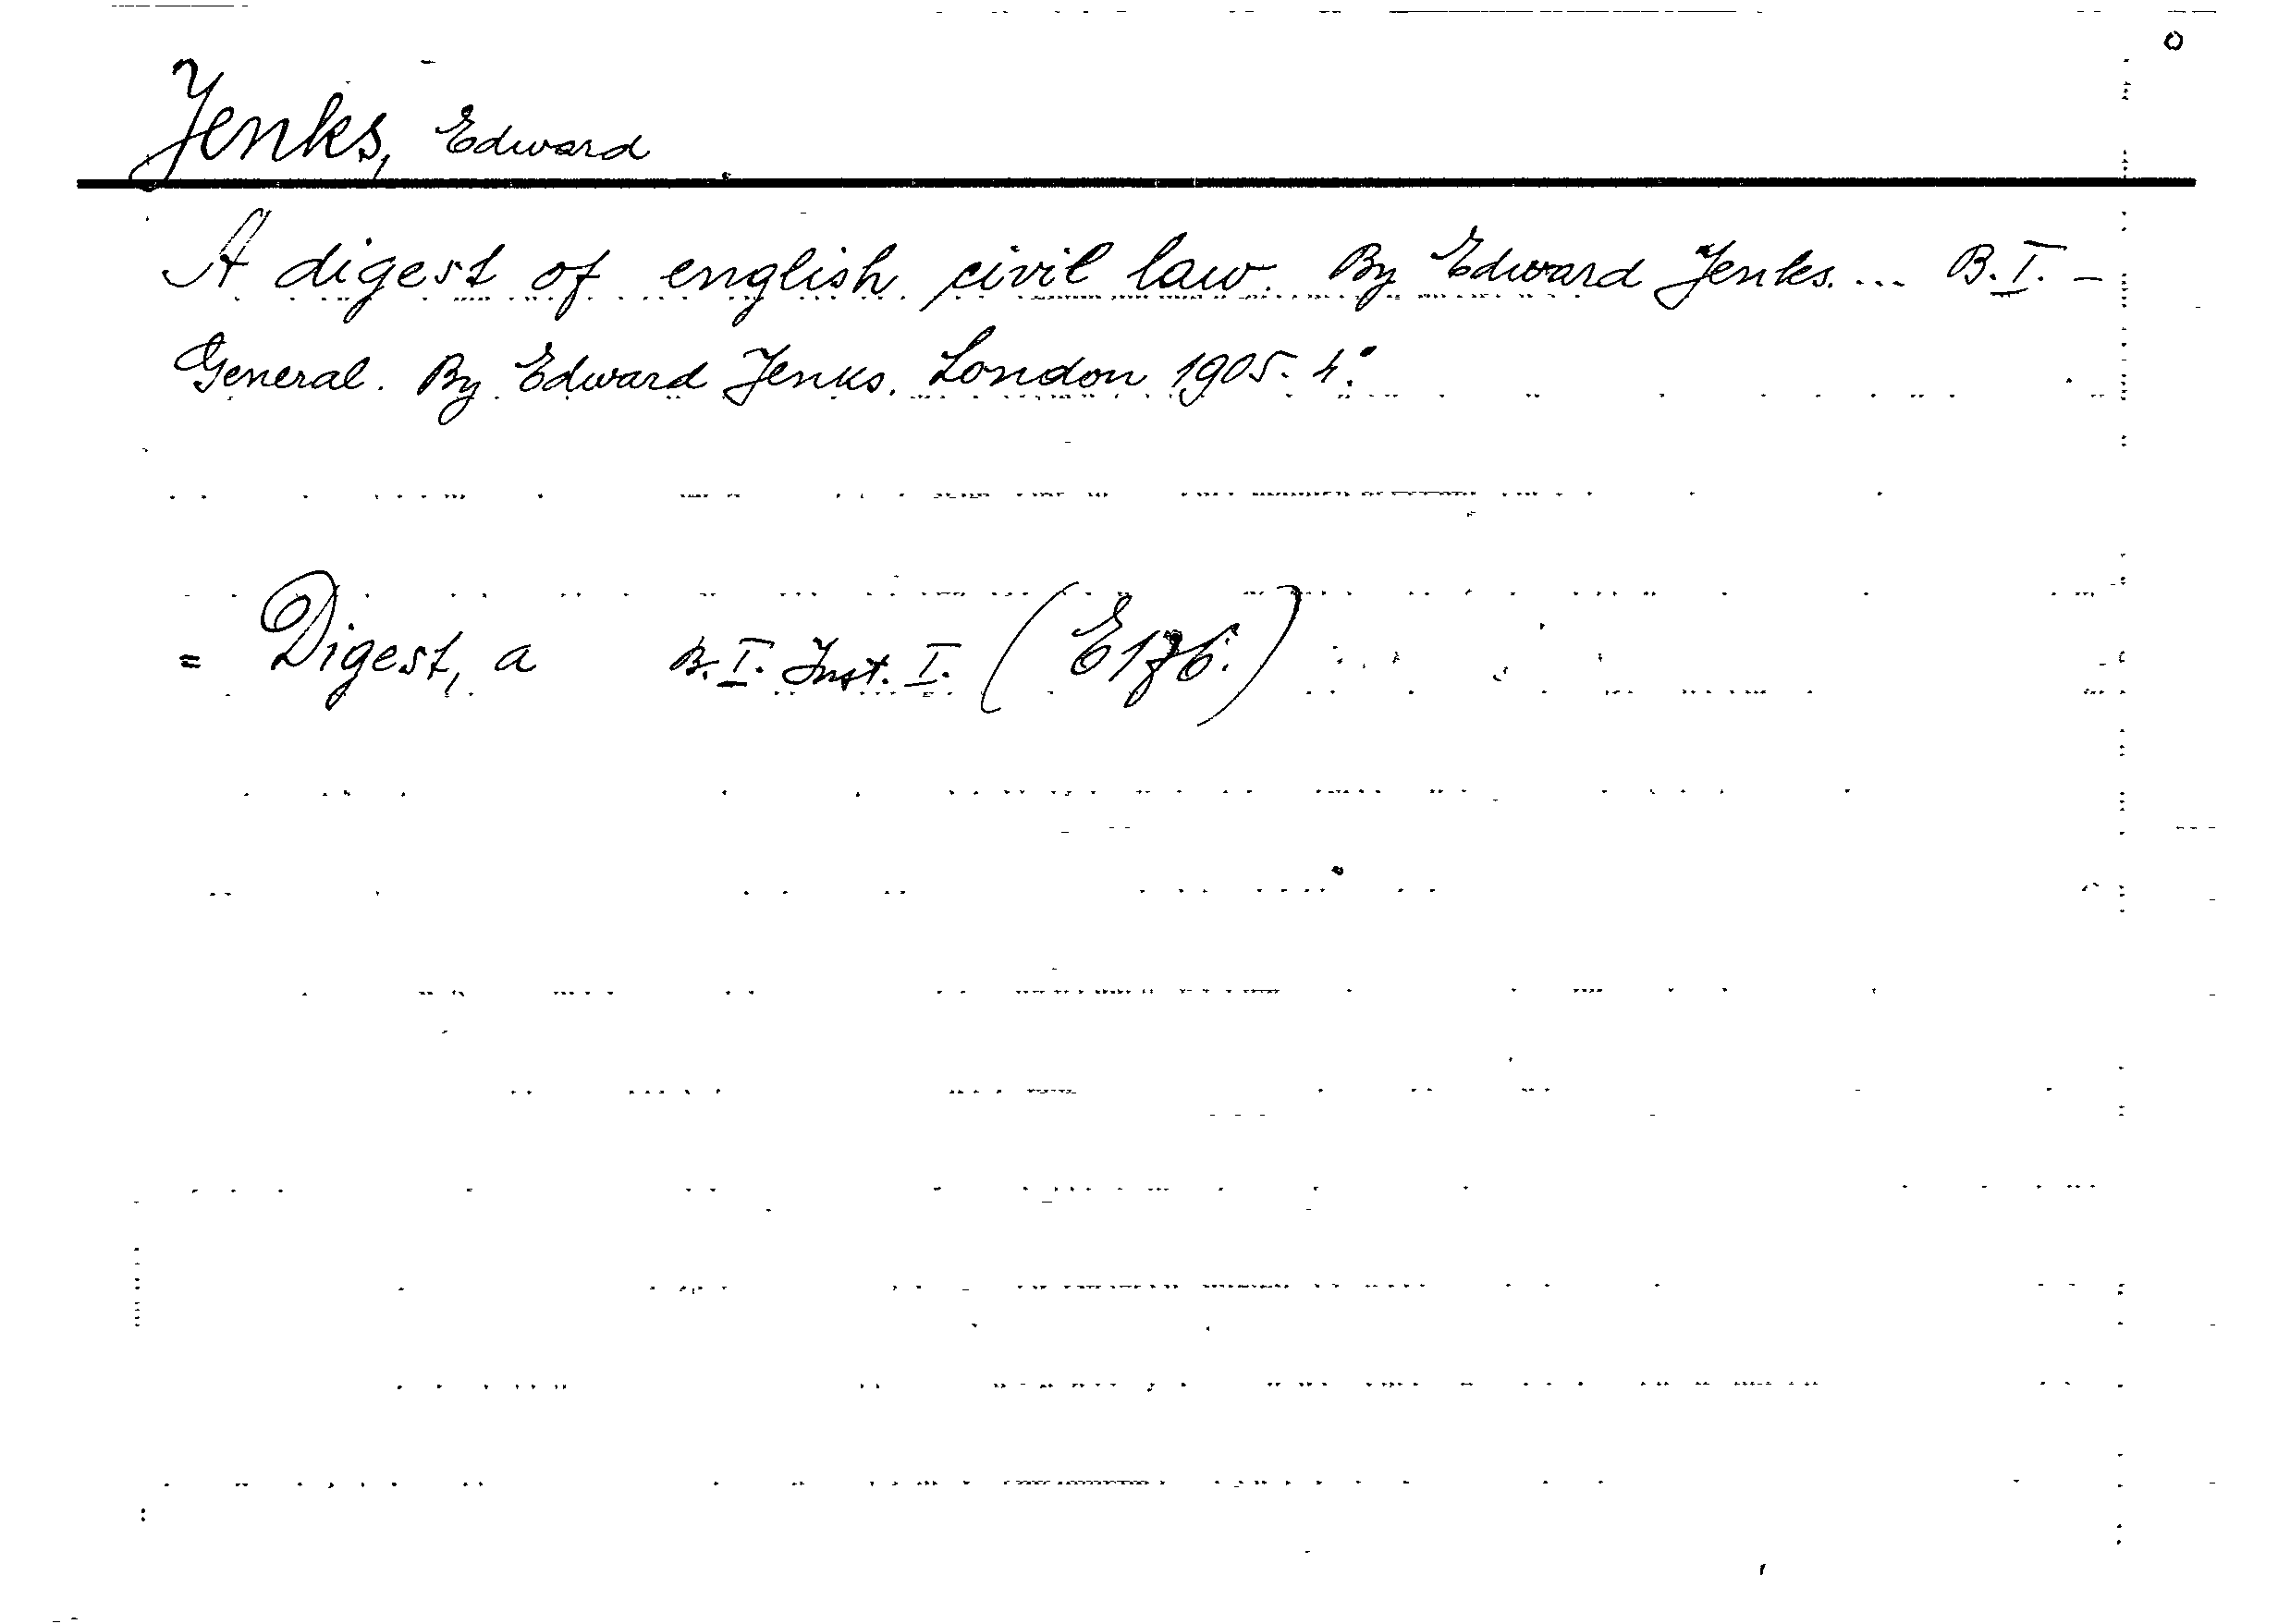 Jenks, Edward
A digest of english civil law. By Edward Jenks. ... B.I. -
General. By Edward Jenks. London 1905. 4°.
= Digest, a B.I. Inst. I. (E176.)